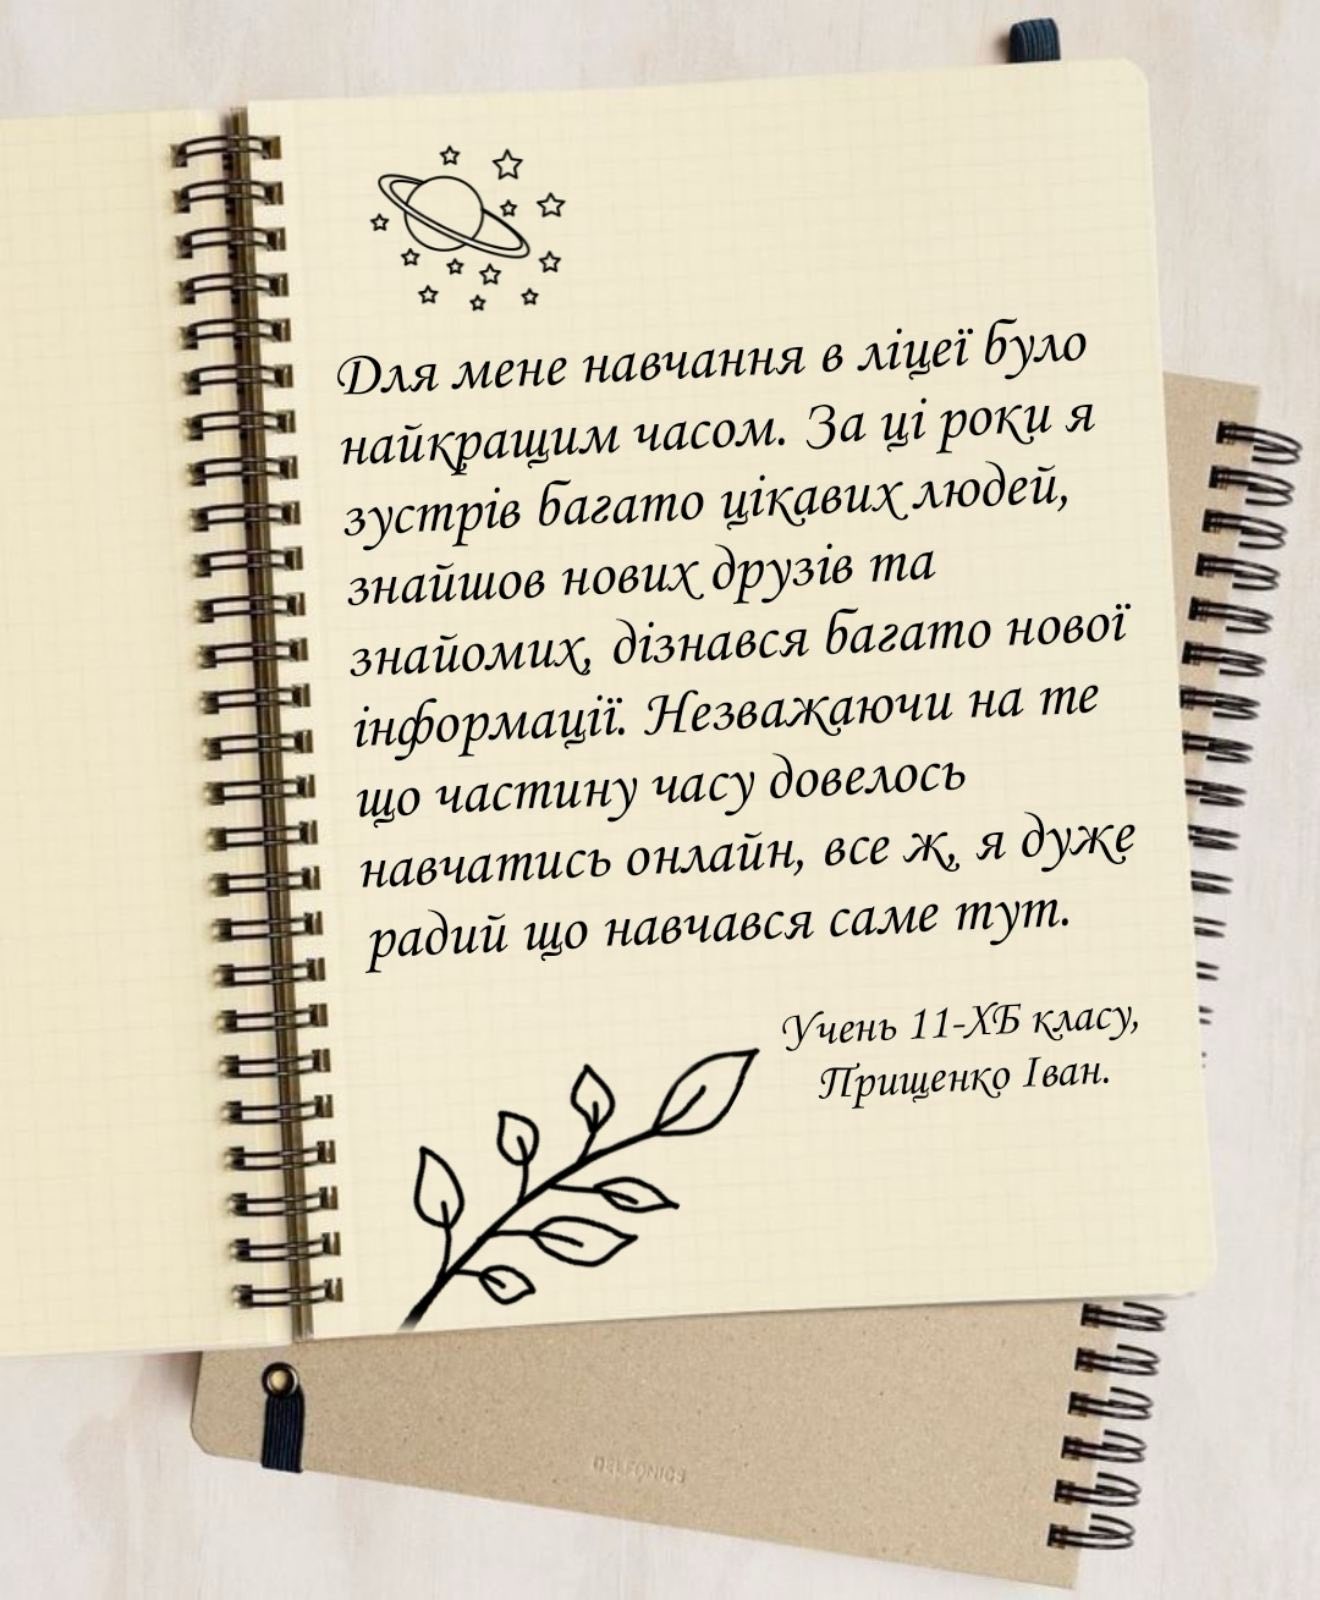 Для мене навчання в ліцеї було
найкращим часом. За ці роки я
зустрів багато цікавих людей,
знайшов нових друзів та
знайомих, дізнався багато нової
інформації. Незважаючи на те
що частину часу довелось
навчатись онлайн, все ж, я дуже
радий що навчався саме тут.
Учень 11-ХБ класу,
Прищенко Іван.
DELFONICS